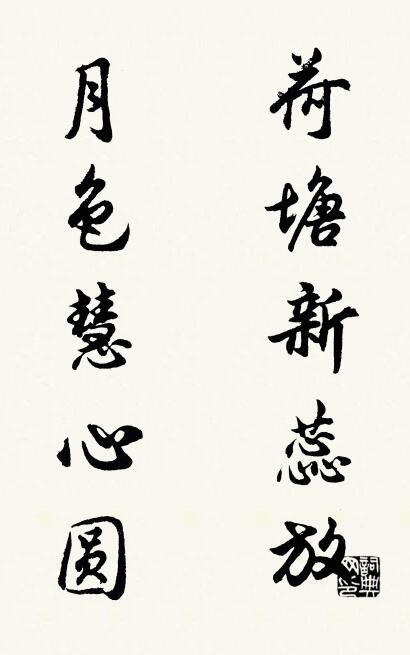 荷塘新蕊放
月色慧心圆
詞典網印